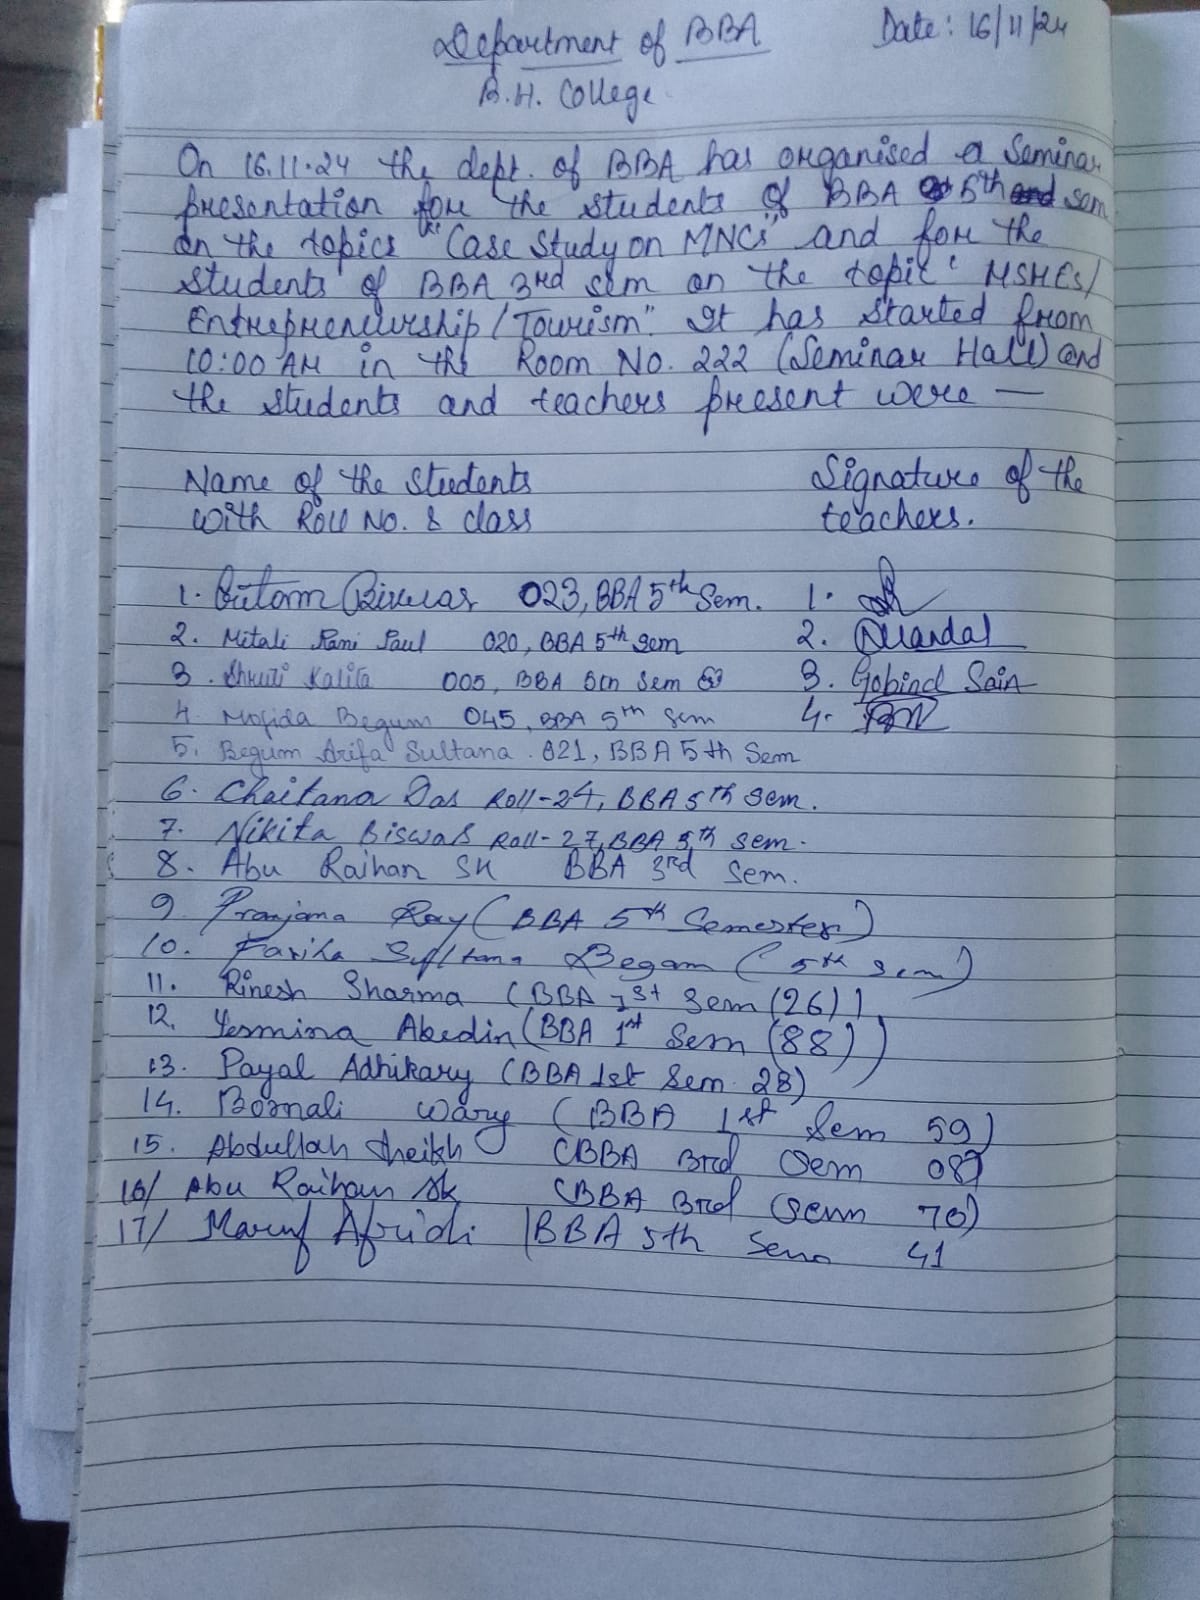 Department of BBA Date: 16/11/24
B.H. College
On 16.11.24 the dept. of BBA has organised a Seminar
presentation for the students of BBA 5th sem
on the topics "Case Study on MNCs" and for the
students of BBA 3rd sem on the topic "MSMEs/
Entrepreneurship/Tourism". It has started from
10:00 AM in the Room No. 222 (Seminar Hall) and
the students and teachers present were —
Name of the students Signature of the
with Roll No. & class teachers.
1. 023, BBA 5th Sem. 1.
2. Mitali Rani Paul 020, BBA 5th sem 2. Mandal
3. Shruti Kalita 005, BBA 5th Sem 3. Gobind Sain
4. Mofida Begum 045, BBA 5th Sem 4.
5. Begum Arifa Sultana. 021, BBA 5th Sem
6. Chaitana Das Roll-24, BBA 5th sem.
7. Nikita Biswas Roll-27, BBA 5th sem.
8. Abu Raihan SK BBA 3rd Sem.
9. Pranjana Ray (BBA 5th Semester)
10. Sultana Begam (5th sem)
11. Rinesh Sharma (BBA 1st Sem (26))
12. Yesmina Abedin (BBA 1st Sem (88))
13. Payal Adhikary (BBA 1st Sem. 28)
14. Bornali Wary (BBA 1st Sem 59)
15. Abdullah Sheikh (BBA 3rd Sem 087
16/ Abu Raihan Sk (BBA 3rd (Sem 70)
17/ Maruf Afridi |BBA 5th Sem 41